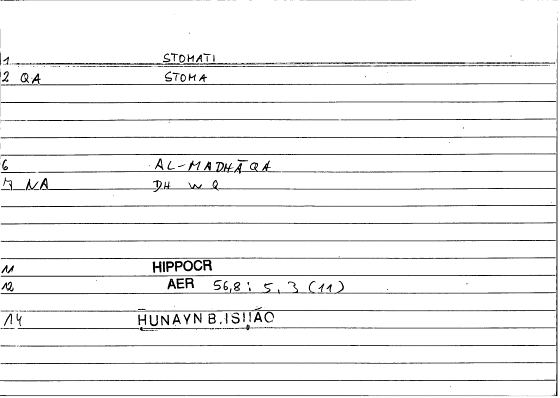 1 STOMATI
2 QA STOMA
6 AL-MADHĀQA
7 NA DH W Q
11 HIPPOCR
12 AER 56,8 : 5, 3 (11)
14 ḤUNAYN B. ISḤĀQ